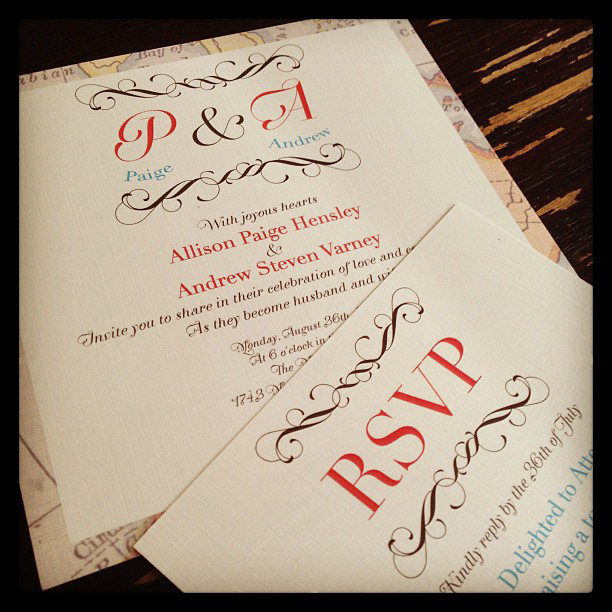 Bay of
P & A
Paige
Andrew
With joyous hearts
Allison Paige Hensley
&
Andrew Steven Varney
Invite you to share in their celebration of love and
As they become husband and
Monday, August 36th
At 6 o'clock in
The
1743
RSVP
Kindly reply by the 36th of July
Delighted to Atte
aising a